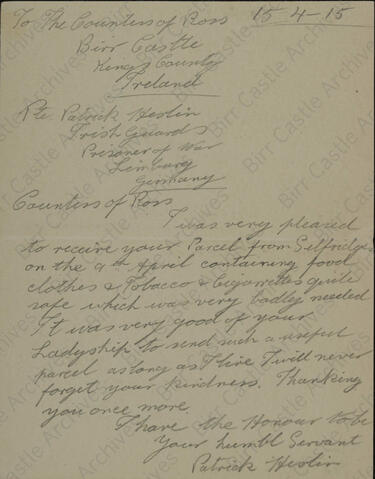 To The Counters of Ross 15-4-15
Birr Castle
Kings County
Ireland
Pte. Patrick Heslin
Irish Guards
Prisoner of War
Limburg
Germany
Counters of Ross
I was very pleased
to receive your Parcel from Selfridges
on the 9th April containing food
clothes & Tobacco & Cigarettes quite
safe which was very badly needed
It was very good of your
Ladyship to send such a useful
parcel as long as I live I will never
forget your kindness. Thanking
you once more.
I have the Honour to be
Your humbl Servant
Patrick Heslin
Birr Castle Archives